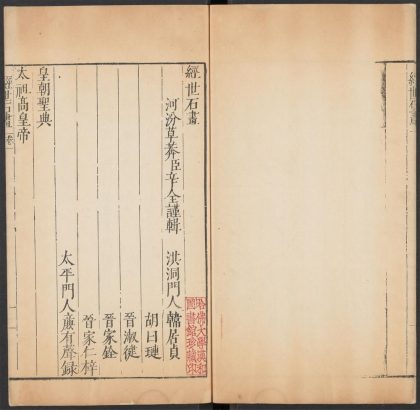 經世石畫
經世石畫
河汾草莽臣辛全謹輯 洪洞門人韓居貞
胡日璉
晉淑健
晉家銓
晉家仁梓
太平門人 有聲錄
皇朝聖典
太祖高皇帝
經世石畫 卷一
哈佛大學漢和
圖書館珍藏印